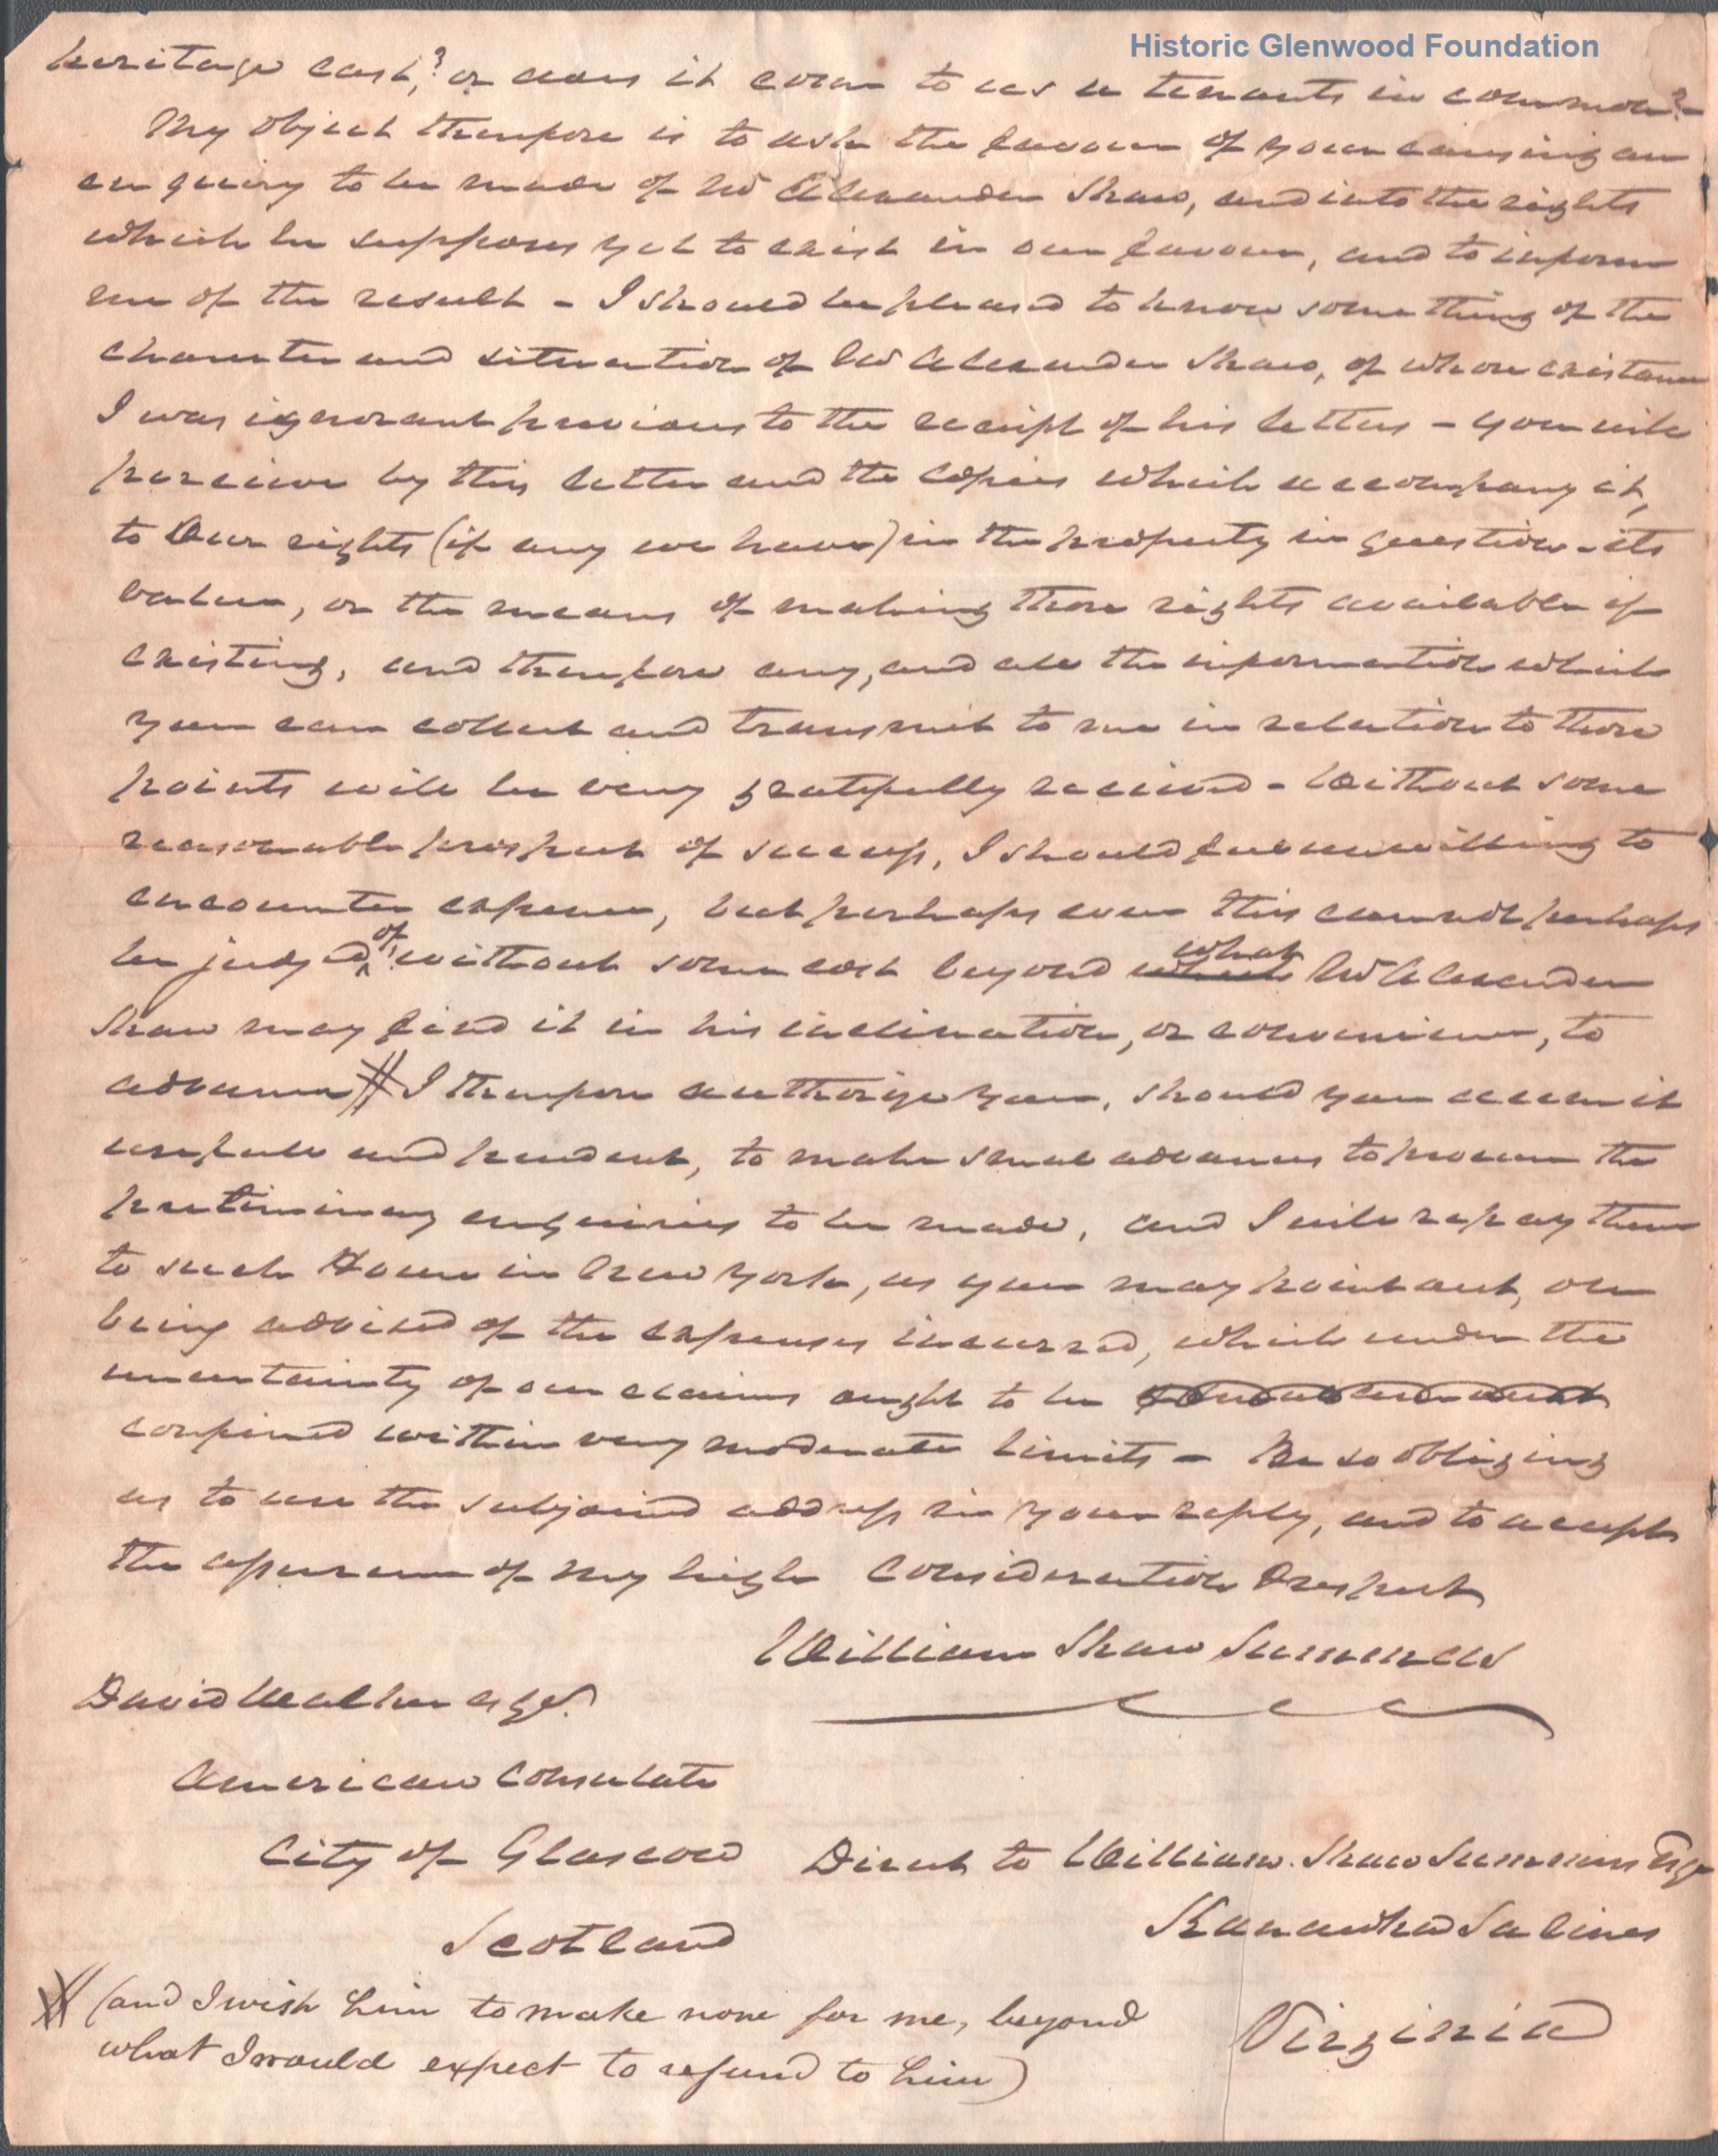 Historic Glenwood Foundation
heritage cast,? or does it come to us as tenants in common?-
My object therefore is to ask the favour of your causing an
enquiry to be made of Mr Alexander Shaw, and into the rights
which he supposes yet to exist in our favour, and to inform
me of the result - I should be pleased to know some thing of the
character and situation of Mr Alexander Shaw, of whose existance
I was ignorant previous to the receipt of his letters - you will
perceive by this letter and the copies which accompany it,
to Our rights (if any we have) in the property in question - its
value, or the means of making those rights available if
existing, and therefore any, and all the information which
you can collect and transmit to me in relation to those
points will be very gratefully received - Without some
reasonable prospect of success, I should feel unwilling to
encounter expense, but perhaps even this cannot perhaps
be judged of, without some cost beyond what Mr Alexander
Shaw may find it in his inclination, or convenience, to
advance # I therefore authorize you, should you deem it
useful and prudent, to make small advances to procure the
preliminary enquiries to be made, and I will repay them
to such House in New York, as you may point out, on
being advised of the expenses incurred, which under the
uncertainty of our claims ought to be
confined within very moderate limits - Be so obliging
as to use the subjoined address in your reply, and to accept
the assurance of my high Consideration & respect
William Shaw Summers
David Walker esqr.
American Consulate
City of Glascow
Scotland
Direct to William Shaw Summers Esqr
Kanawha Salines
Virginia
# (and I wish him to make none for me, beyond
what I would expect to refund to him)